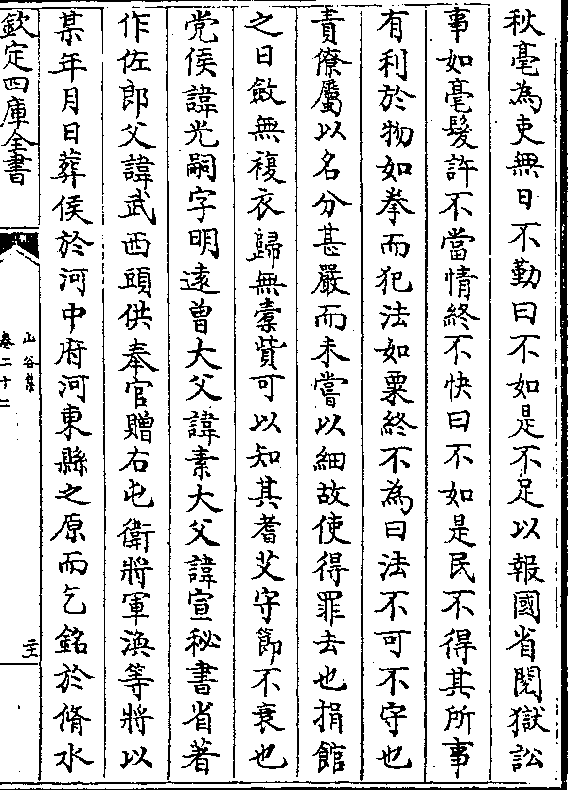 秋毫為吏無日不勤曰不如是不足以報國省閱獄訟
事如毫髮許不當情終不快曰不如是民不得其所事
有利於物如拳而犯法如粟終不為曰法不可不守也
責僚屬以名分甚嚴而未嘗以細故使得罪去也捐館
之日斂無複衣歸無橐貲可以知其耆艾守節不衰也
党侯諱光嗣字明遠曾大父諱素大父諱宣秘書省著
作佐郎父諱武西頭供奉官贈右屯衛將軍渙等將以
某年月日葬侯於河中府河東縣之原而乞銘於脩水
欽定四庫全書
山谷集
卷二十二